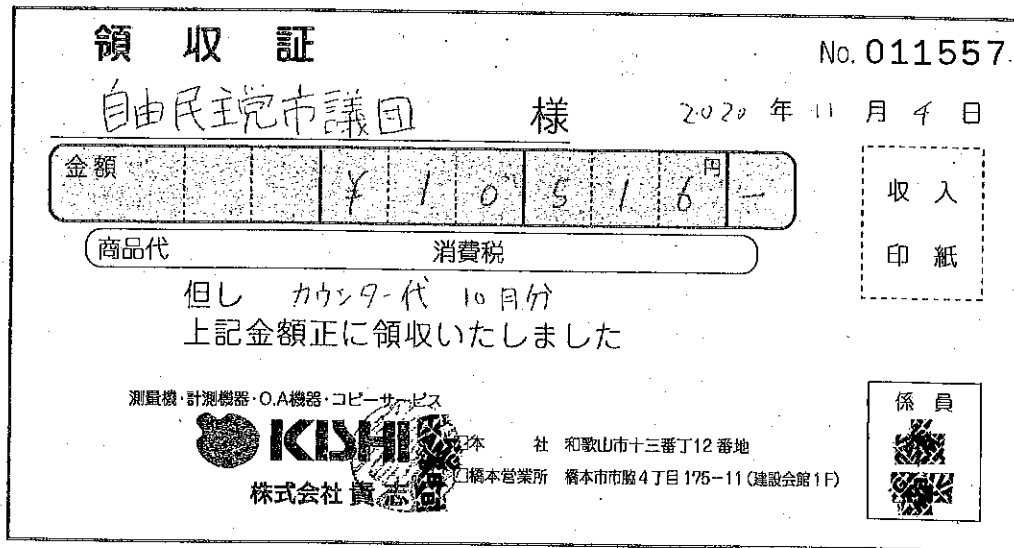 領収証
No. 011557
自由民主党市議団 様
2020年11月4日
金額 ¥10516円-
収入
印紙
商品代 消費税
但し カウンター代 10月分
上記金額正に領収いたしました
測量機・計測機器・O.A機器・コピーサービス
KISHI
株式会社 貴志
□本社 和歌山市十三番丁12番地
□橋本営業所 橋本市市脇4丁目175-11(建設会館1F)
係員